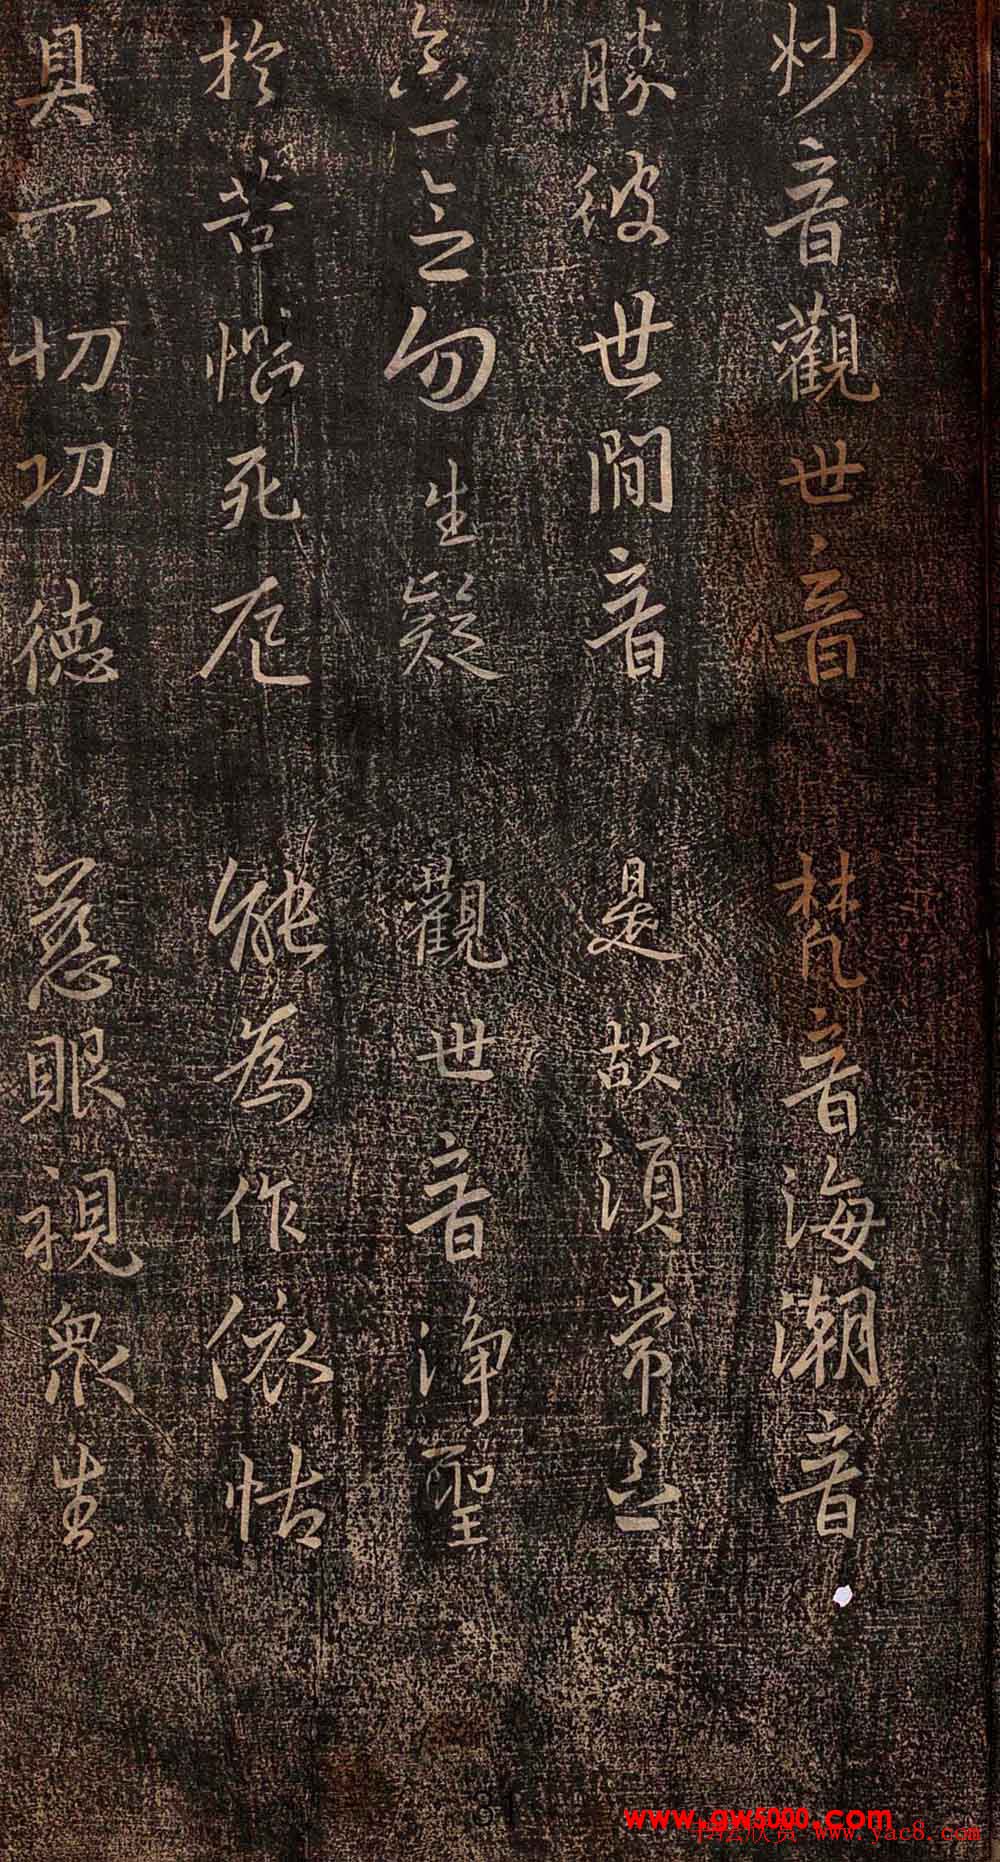 妙音觀世音　梵音海潮音
勝彼世間音　是故須常念
念念勿生疑　觀世音淨聖
於苦惱死厄　能為作依怙
具一切功德　慈眼視眾生
www.gw5000.com
书法欣赏 www.yac8.com